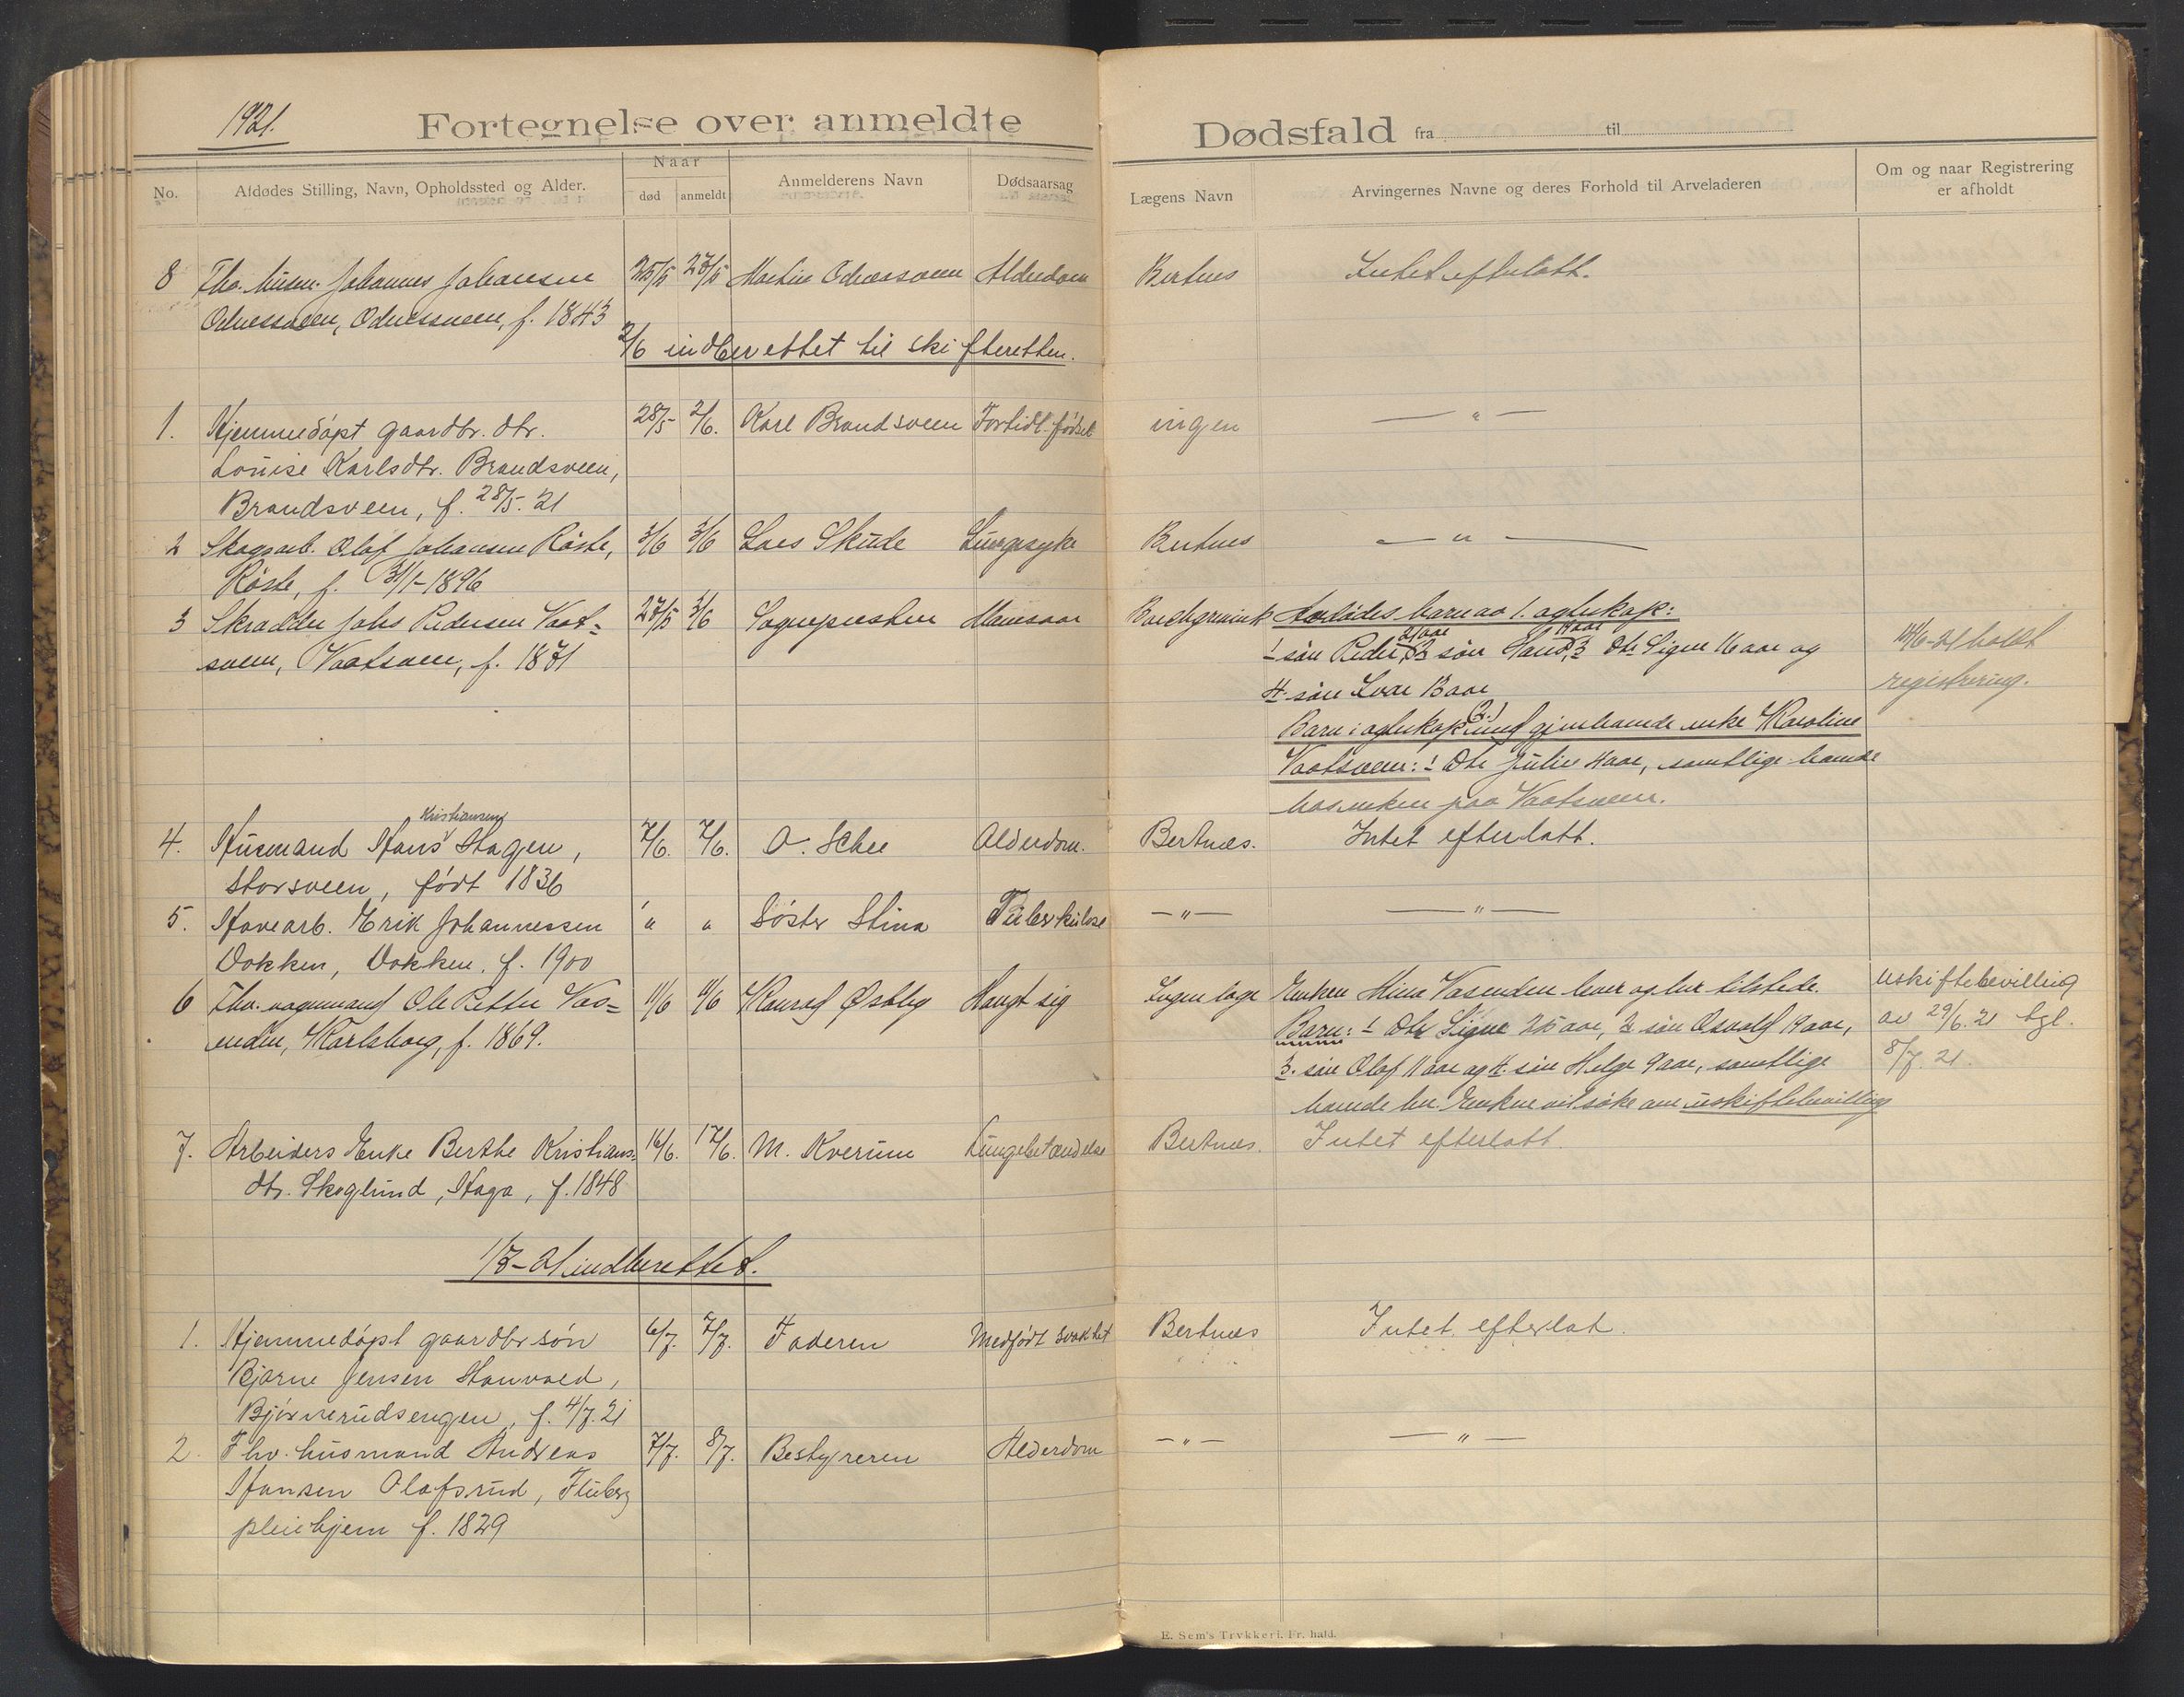 1921.
Fortegnelse over anmeldte Dødsfald fra til
No.
Afdødes Stilling, Navn, Opholdssted og Alder.
Naar
død
anmeldt
Anmelderens Navn
Dødsaarsag
Lægens Navn
Arvingernes Navne og deres Forhold til Arveladeren
Om og naar Registrering
er afholdt
8 Fhv. husm. Johannes Johansen 25/5 27/5 Martin Odnessveen Alderdom Bertnes Intet efterlatt.
Odnessveen, Odnessveen, f. 1843
2/6 indberettet til skifteretten.
1. Hjemmedöpt gaardbr. dtr. 28/5 2/6. Karl Brandsveen Fortidl. födsel ingen — " —
Louise Karlsdtr. Brandsveen,
Brandsveen, f. 28/5. 21
2 Skogsarb. Olaf Johansen Röste, 3/6 3/6 Lars Skute Lungesyke Bertnes — " —
Röste, f. 31/1-1896
3 Skrædder Johs Pedersen Vaat= 27/5 3/6 Sognepresten Avdödes barn av 1. egteskap:
sveen, Vaatsveen, f. 1871
1 sön Peder 21 aar, 2 sön 3 dtr Signe 16 aar og
4. sön Ivar 13 aar
14/6-21 holdt
registrering.
Barn i egteskap (2.) med gjenlevende enke Karoline
Vaatsveen: 1 dtr Julie 4 aar, samtlige
hos enken paa Vaatsveen.
4. Husmand Hans Kristiansen Hagen, 7/6. 7/6. O. Schee Alderdom. Bertnes. Intet efterlatt.
Storsveen, födt 1836
5. Havearb. Erik Johannessen " " Söster Stina Tuberkulose — " — — " —
Dokken, Dokken. f. 1900
6 Fhv. vognmand Ole Petter Vas= 11/6 11/6 Konrad Østby Hængt sig Ingen læge Enken Mina Vasenden lever og bor tilstede.
enden, Karlsborg, f. 1869.
Barn: 1 dtr Signe 25 aar, 2 sön Osvald 19 aar,
3. sön Olaf 11 aar og 4. sön Helge 9 aar, samtlige
Enken vil söke om uskiftebevilling
uskiftebevilling
av 29/6. 21 tgl.
8/7. 21.
7. Arbeiders Enke Berthe Kristians= 16/6. 17/6. M. Kverum Lungebetændelse Bertnes. Intet efterlatt.
dtr. Skoglund, Haga, f. 1848
1/7-21 indberettet.
1. Hjemmedöpt gaardbr sön 6/7. 7/7. Faderen Medfödt svakhet Bertnes Intet efterlat.
Bjarne Jensen Hanvold,
Björnerudsengen, f. 4/7. 21
2. Fhv. husmand Andreas 7/7. 8/7. Bestyreren Alderdom — " — — " —
Hansen Olafsrud, Fluberg
pleiehjem f. 1829
E. Sem's Trykkeri, Fr. hald.